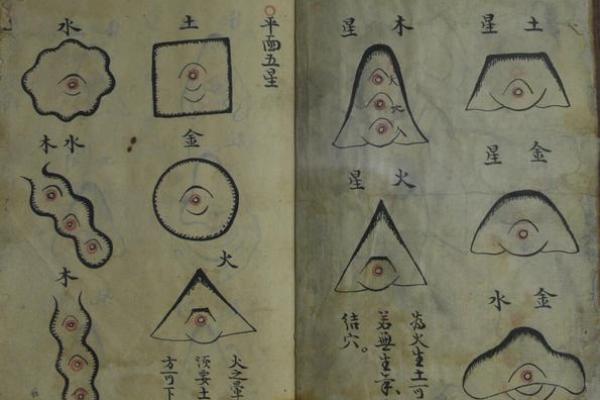 土星
木星
金星
火星
金水
火生土可
若無生氣
結穴。
平面五星
土
水
金
水木
火
木
火之
須要土
方可下